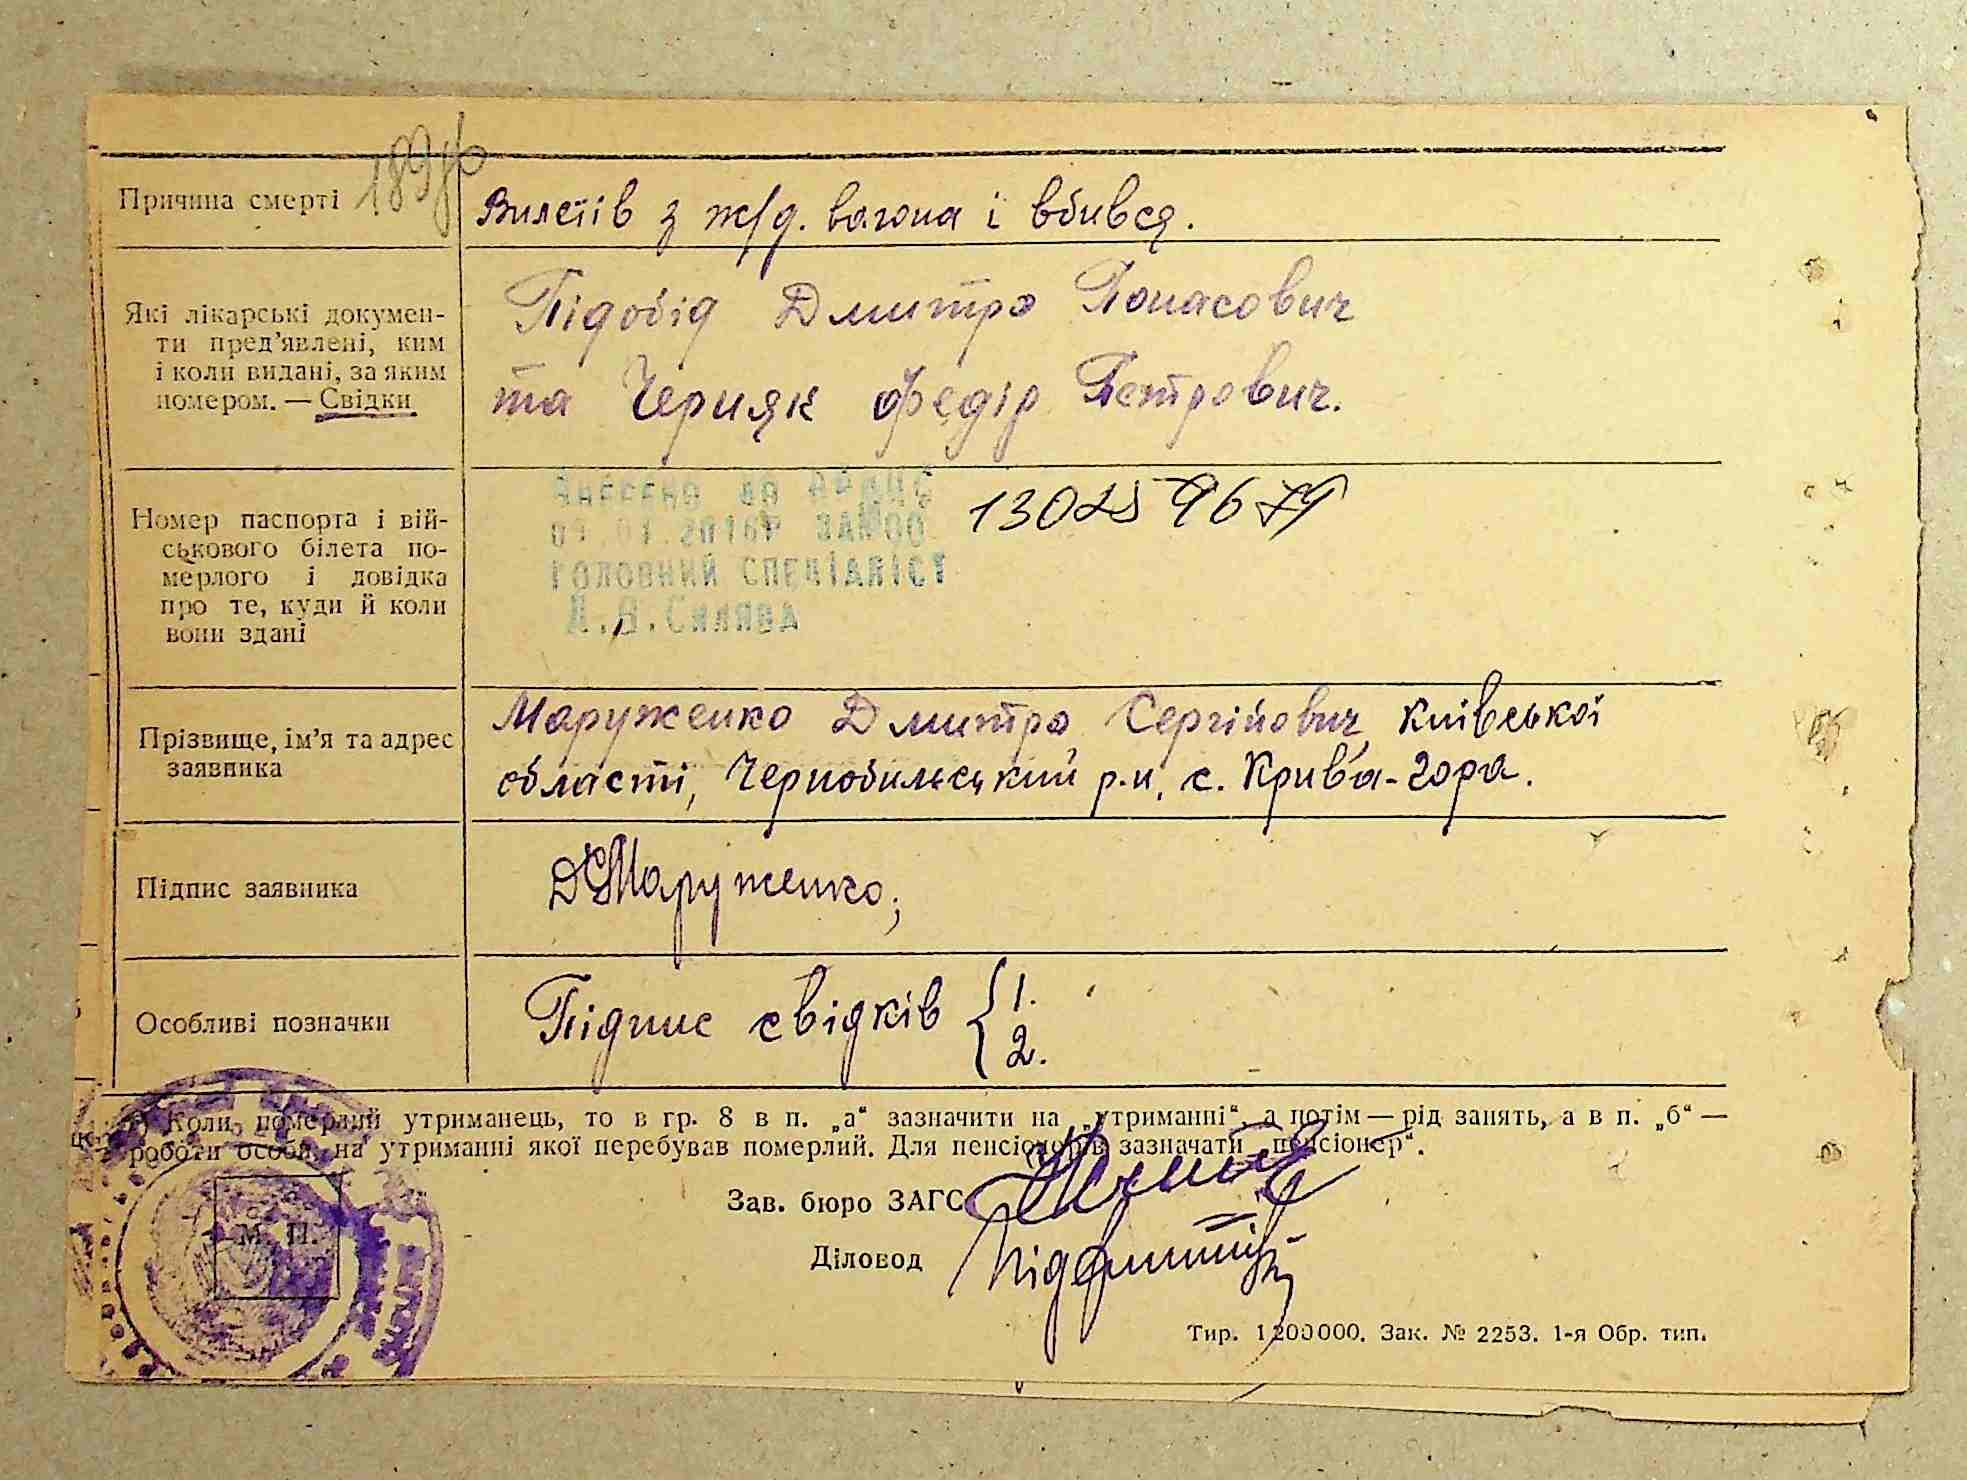 Причина смерті
Вилетів з ж/д. вагона і вбився.
Які лікарські докумен-
ти пред'явлені, ким
і коли видані, за яким
номером. — Свідки
Підобід Дмитро Понасович
та Черняк Федір Петрович.
Номер паспорта і вій-
ськового білета по-
мерлого і довідка
про те, куди й коли
вони здані
13025 9679
ГОЛОВНИЙ СПЕЦІАЛІСТ
Прізвище, ім'я та адрес
заявника
Маруженко Дмитро Сергійович, Київської
області, Чернобильський р-н, с. Крива-гора.
Підпис заявника
ДСМаруженко;
Особливі позначки
Підпис свідків { 1.
2.
Коли померлий утриманець, то в гр. 8 в п. „а“ зазначити на „утриманні“, а потім — рід занять, а в п. „б“ —
роботи особи, на утриманні якої перебував померлий. Для пенсіонерів зазначати „пенсіонер“.
Зав. бюро ЗАГС
М. П.
Діловод
Тир. 1200000. Зак. № 2253. 1-я Обр. тип.